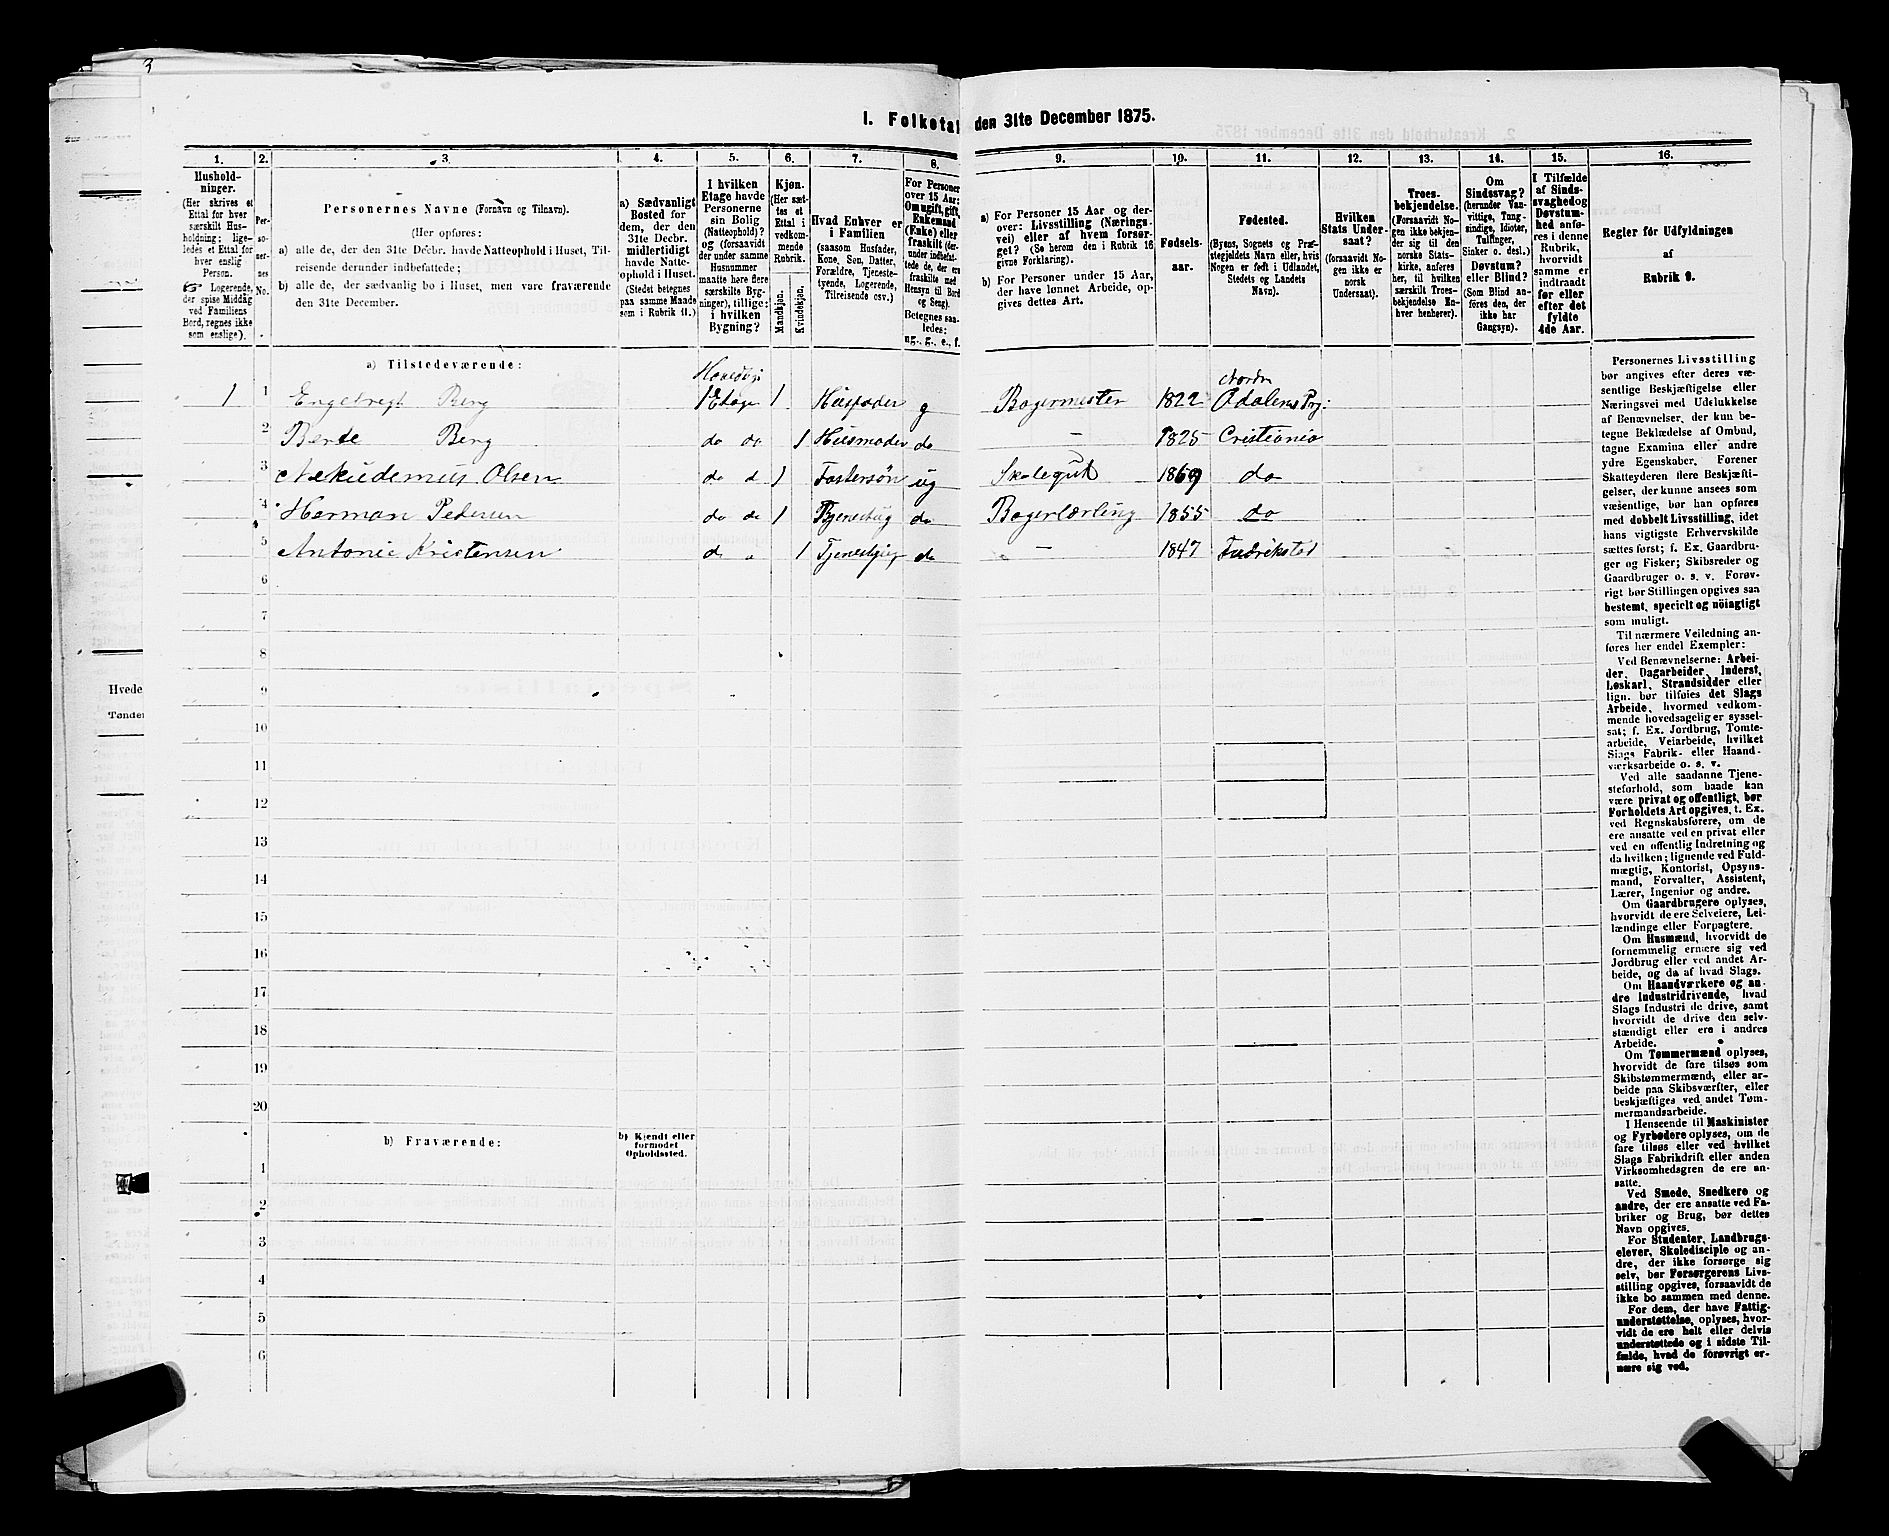 3
I. Folketal den 31te December 1875.
1. 2. 3. 4. 5. 6. 7. 8. 9. 10. 11. 12. 13. 14. 15. 16.
Hushold-
ninger.
(Her skrives et
Ettal for hver
særskilt Hus-
holdning; lige-
ledes et Ettal for
hver enslig
Person.
Logerende,
der spise Middag
ved Familiens
Bord, regnes ikke
som enslige).
Per-
so-
ner-
nes
No.
Personernes Navne (Fornavn og Tilnavn).
(Her opføres:
a) alle de, der den 31te Decbr. havde Natteophold i Huset, Til-
reisende derunder indbefattede;
b) alle de, der sædvanlig bo i Huset, men vare fraværende
den 31te December.
a) Sædvanligt
Bosted for
dem, der den
31te Decbr.
midlertidigt
havde Natte-
ophold i Huset.
(Stedet betegnes
paa samme Maade
som i Rubrik 11.)
I hvilken
Etage havde
Personerne
sin Bolig
(Natteophold)?
og (forsaavidt
der under samme
Husnummer
maatte høre flere
særskilte Byg-
ninger), tillige:
i hvilken
Bygning?
Kjøn.
(Her sæt-
tes et
Ettal i
vedkom-
mende
Rubrik.
Mandkjøn.
Kvindekjøn.
Hvad Enhver er
i Familien
(saasom Husfader,
Kone, Søn, Datter,
Forældre, Tjeneste-
tyende, Logerende,
Tilreisende osv.)
For Personer
over 15 Aar:
Om ugift, gift,
Enkemand
(Enke) eller
fraskilt (der-
under indbefat-
tede de, der ere
fraskilte med
Hensyn til Bord
og Seng).
Betegnes saa-
ledes:
ug., g., e., f.
a) For Personer 15 Aar og der-
over: Livsstilling (Nærings-
vei) eller af hvem forsør-
get? (Se herom den i Rubrik 16
givne Forklaring).
b) For Personer under 15 Aar,
der have lønnet Arbeide, op-
gives dettes Art.
Fødsels-
aar.
Fødested.
(Byens, Sognets og Præ-
stegjeldets Navn eller, hvis
Nogen er født i Udlandet,
Stedets og Landets
Navn).
Hvilken
Stats Under-
saat?
(forsaavidt No-
gen ikke er
norsk
Undersaat).
Troes-
bekjendelse.
(Forsaavidt No-
gen ikke bekjen-
der sig til den
norske Stats-
kirke, anføres
her, til hvilken
særskilt Troes-
bekjendelse En-
hver henhører).
Om
Sindssvag?
(herunder Van-
vittige, Tung-
sindige, Idioter,
Tullinger,
Sinker o. desl.)
Døvstum?
eller Blind?
(Som Blind an-
føres den, der
ikke har
Gangsyn).
I Tilfælde
af Sinds-
svaghed og
Døvstum-
hed anfø-
res i denne
Rubrik,
hvorvidt
samme er
indtraadt
før eller
efter det
fyldte
4de Aar.
Regler før Udfyldningen
af
Rubrik 9.
a) Tilstedeværende:
1 1 Engebregt Berg Hovedbygn 1 Etage 1 Husfader g Bagermester 1822 Nordre Odalens Prg:
2 Berte Berg do do 1 Husmoder do – 1825 Cristiania
3 Nekudemus Olsen do d 1 Fostersøn ug Skolegut 1869 do
4 Herman Pedersen do do 1 do Bagerlærling 1855 do
5 Antonie Kristensen do 1 do – 1847 Fredrikstad
6
7
8
9
10
11
12
13
14
15
16
17
18
19
20
b) Fraværende:
b) Kjendt eller
formodet
Opholdssted.
1
2
3
4
5
6
Personernes Livsstilling
bør angives efter deres væ-
sentlige Beskjæftigelse eller
Næringsvei med Udelukkelse
af Benævnelser, der kun be-
tegne Beklædelse af Ombud,
tagne Examina eller andre
ydre Egenskaber. Forener
Skatteyderen flere Beskjæfti-
gelser, der kunne ansees som
væsentlige, bør han opføres
med dobbelt Livsstilling, idet
hans vigtigste Erhvervskilde
sættes først; f. Ex. Gaardbru-
ger og Fisker; Skibsreder og
Gaardbruger o. s. v. Forøv-
rigt bør Stillingen opgives saa
bestemt, specielt og nöiagtigt
som muligt.
Til nærmere Veiledning an-
føres her endel Exempler:
Ved Benævnelserne: Arbei-
der, Dagarbeider, Inderst,
Løskarl, Strandsidder eller
lign. bør tilføies det Slags
Arbeide, hvormed vedkom-
mende hovedsagelig er syssel-
sat; f. Ex. Jordbrug, Tomte-
arbeide, Veiarbeide, hvilket
Slags Fabrik- eller Haand-
værksarbeide o. s. v.
Ved alle saadanne Tjene-
steforhold, som baade kan
være privat og offentligt, bør
Forholdets Art opgives, t. Ex.
ved Regnskabsførere, om de
ere ansatte ved en privat eller
ved en offentlig Indretning og
da hvilken; lignende ved Fuld-
mægtig, Kontorist, Opsyns-
mand, Forvalter, Assistent,
Lærer, Ingeniør og andre.
Om Gaardbrugere oplyses,
hvorvidt de ere Selveiere, Lei-
lændinge eller Forpagtere.
Om Husmænd, hvorvidt de
fornemmelig ernære sig ved
Jordbrug eller ved andet Ar-
beide, og da af hvad Slags.
Om Haandværkere og an-
dre Industridrivende, hvad
Slags Industri de drive, samt
hvorvidt de drive den selv-
stændigt eller ere i andres
Arbeide.
Om Tømmermænd oplyses,
hvorvidt de fare tilsøs som
Skibstømmermænd, eller ar-
beide paa Skibsværfter, eller
beskjæftiges ved andet Tøm-
mermandsarbeide.
I Henseende til Maskinister
og Fyrbødere oplyses, om de
fare tilsøs eller ved hvilket
Slags Fabrikdrift eller anden
Virksomhedsgren de ere an-
satte.
Ved Smede, Snedkere og
andre, der ere ansatte ved Fa-
briker og Brug, bør dettes
Navn opgives.
For Studenter, Landbrugs-
elever, Skoledisciple og an-
dre, der ikke forsørge sig
selv, bør Forsørgerens Livs-
stilling opgives, forsaavidt de
ikke bo sammen med denne.
For dem, der have Fattig-
understøttelse, oplyses, hvor-
vidt de ere helt eller delvis
understøttede og i sidste Til-
fælde, hvad de forøvrigt er-
nære sig ved.
Hvede
Tønder